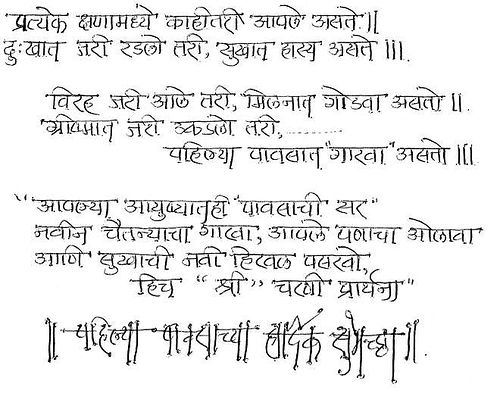 प्रत्येक क्षणामध्ये काहीतरी आपले असते ||
दुःखात जरी रडलो तरी, सुखात हास्य असते |||
विरह जरी आले तरी, मिलनात गोडवा असतो ||
ग्रीष्मात जरी उकडले तरी, ............
पहिल्या पावसात "गारवा" असतो |||
"आपल्या आयुष्यातही "पावसाची सर"
नवीन चैतन्याचा गारवा, आपले पणाचा ओलावा
आणि सुखाची नवी हिरवळ पसरवो,
हिच "श्री" चरणी प्रार्थना"
|| पहिल्या पावसाच्या हार्दिक शुभेच्छा ||